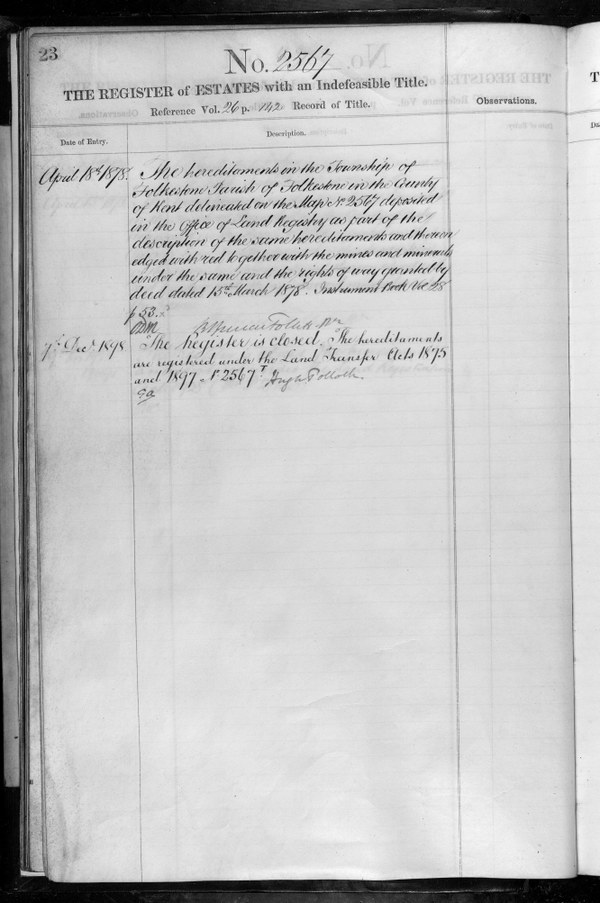 23
No. 2567
THE REGISTER of ESTATES with an Indefeasible Title.
Reference Vol. 26 p. 142 Record of Title.
Observations.
Date of Entry.
Description.
April 18th 1878.
The hereditaments in the Township of
Folkestone Parish of Folkestone in the County
of Kent delineated on the Map No 2567 deposited
in the Office of Land Registry as part of the
description of the same hereditaments and thereon
edged with red together with the mines and minerals
under the same and the rights of way granted by
deed dated 15th March 1878. Instrument Book Vol 28
p 53.
7th Decr 1898
The Register is closed. The hereditaments
are registered under the Land Transfer Acts 1875
and 1897 - No 2567T
Hugh Pollock